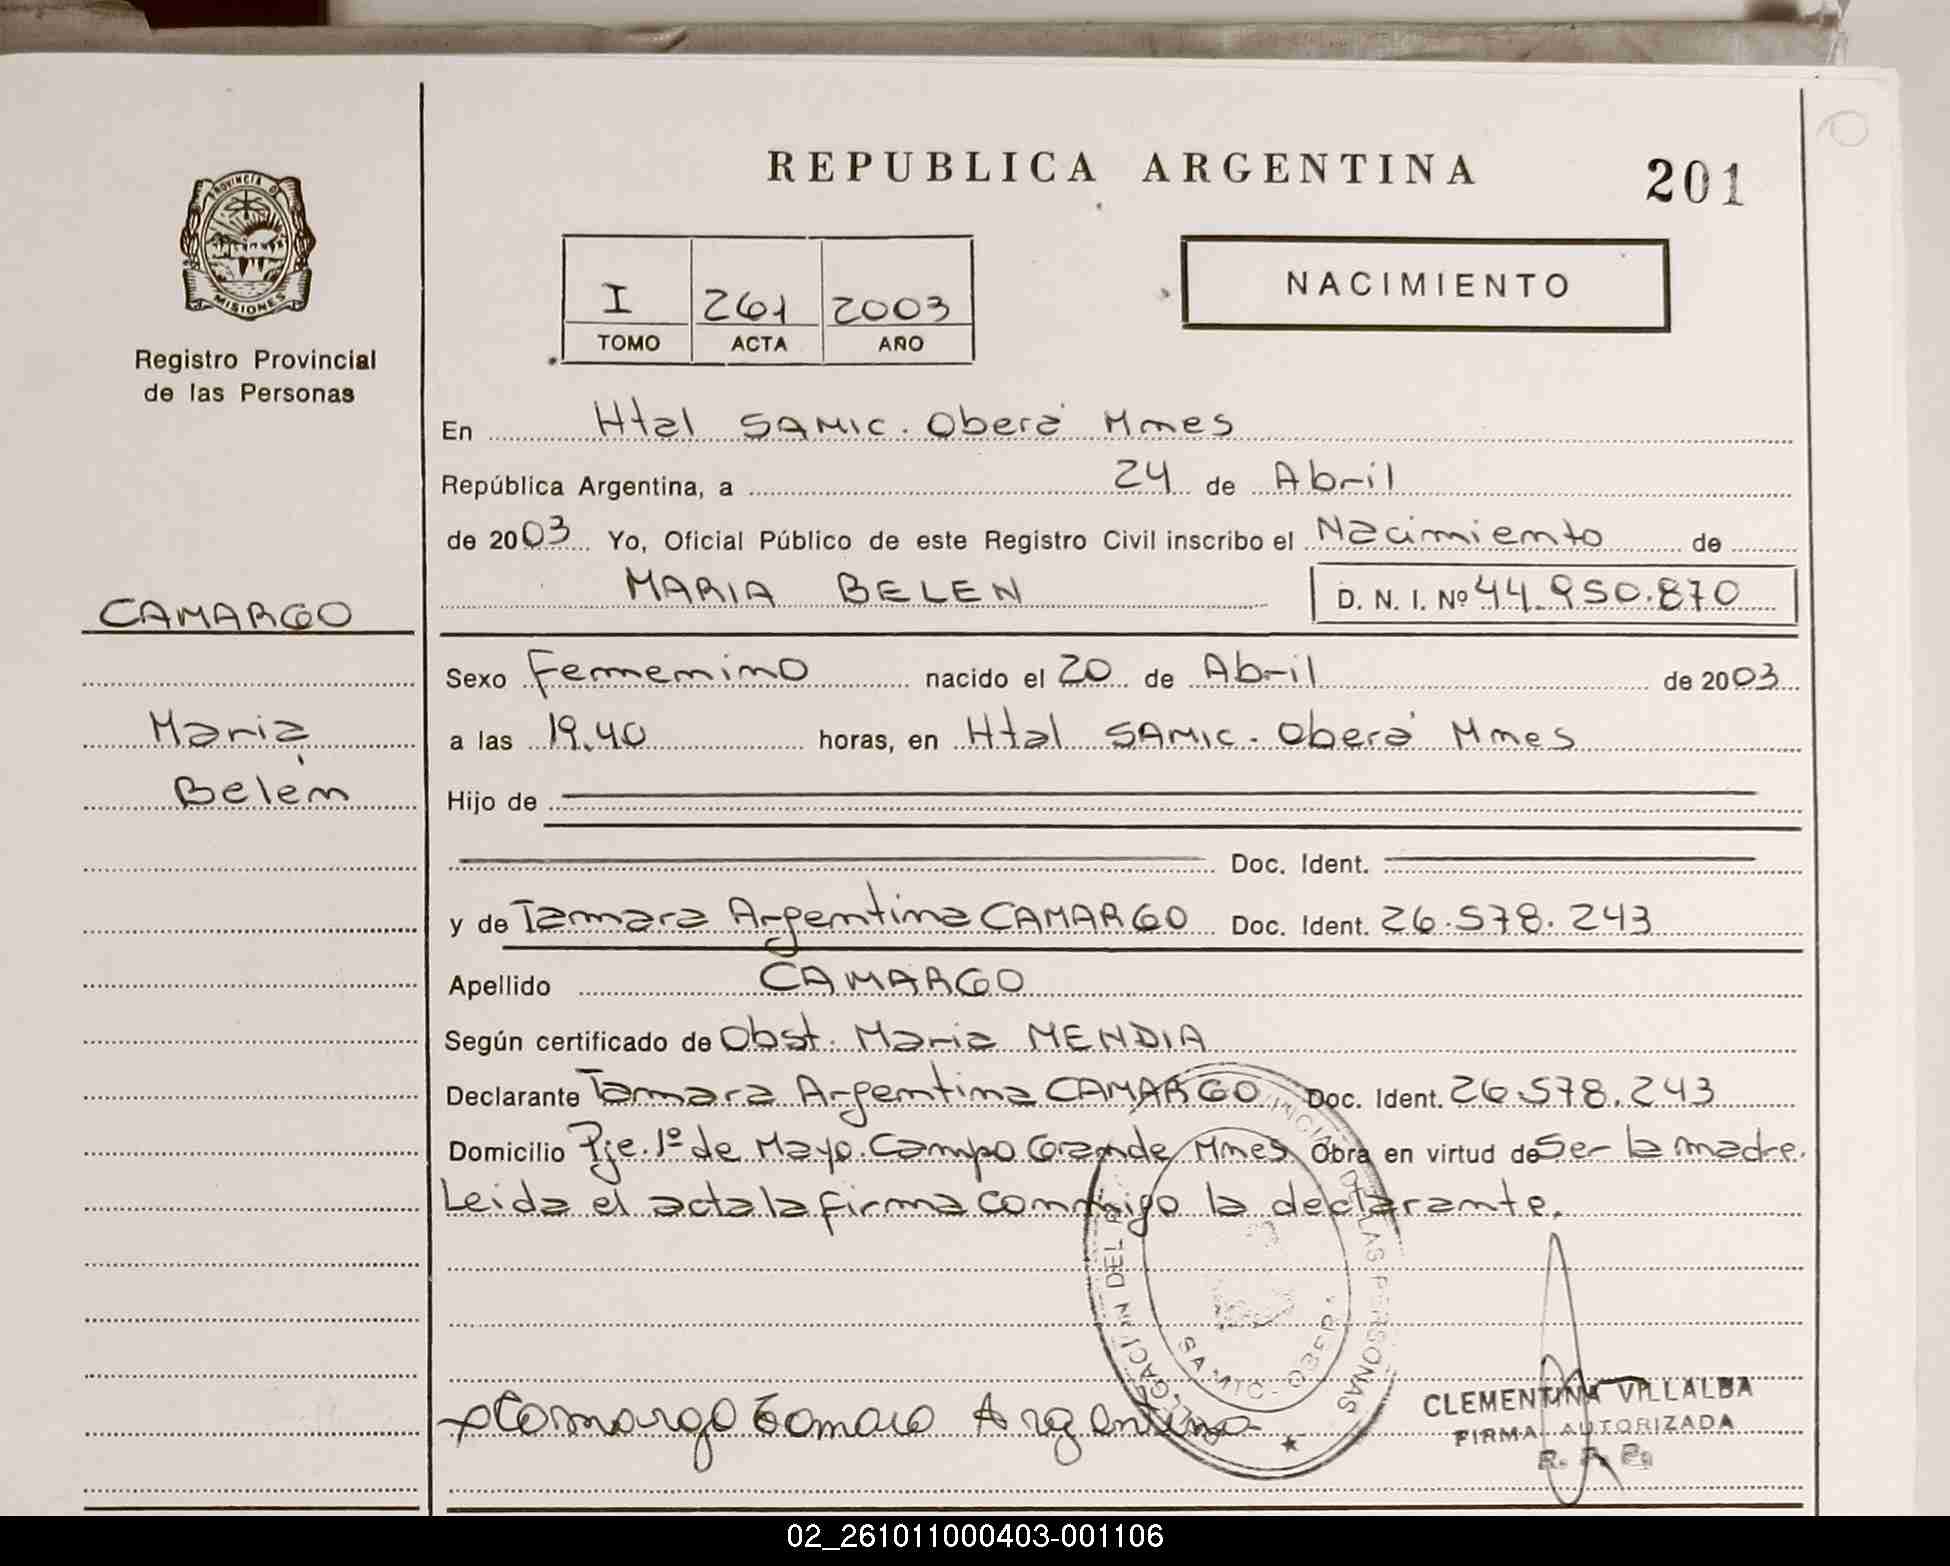 REPUBLICA ARGENTINA
201
PROVINCIA DE
MISIONES
Registro Provincial
de las Personas
I 261 2003
TOMO ACTA AÑO
NACIMIENTO
En Htal SAMIC. Oberá Mnes
República Argentina, a 24 de Abril
de 2003 Yo, Oficial Público de este Registro Civil inscribo el Nacimiento de
MARIA BELEN D. N. I. Nº 44.950.870
CAMARGO
Maria
Belén
Sexo Femenino nacido el 20 de Abril de 2003
a las 19.40 horas, en Htal SAMIC. Oberá Mnes
Hijo de
Doc. Ident.
y de Tamara Argentina CAMARGO Doc. Ident. 26.578.243
Apellido CAMARGO
Según certificado de Obst. Maria MENDIA
Declarante Tamara Argentina CAMARGO Doc. Ident. 26.578.243
Domicilio Pje. 1º de Mayo. Campo Grande Mnes Obra en virtud de Ser la madre.
Leida el acta la firma conmigo la declarante.
DE LAS PERSONAS
SAMIC - OBERA
Camargo Tamara Argentina
CLEMENTINA VILLALBA
FIRMA AUTORIZADA
R. P. P.
02_261011000403-001106